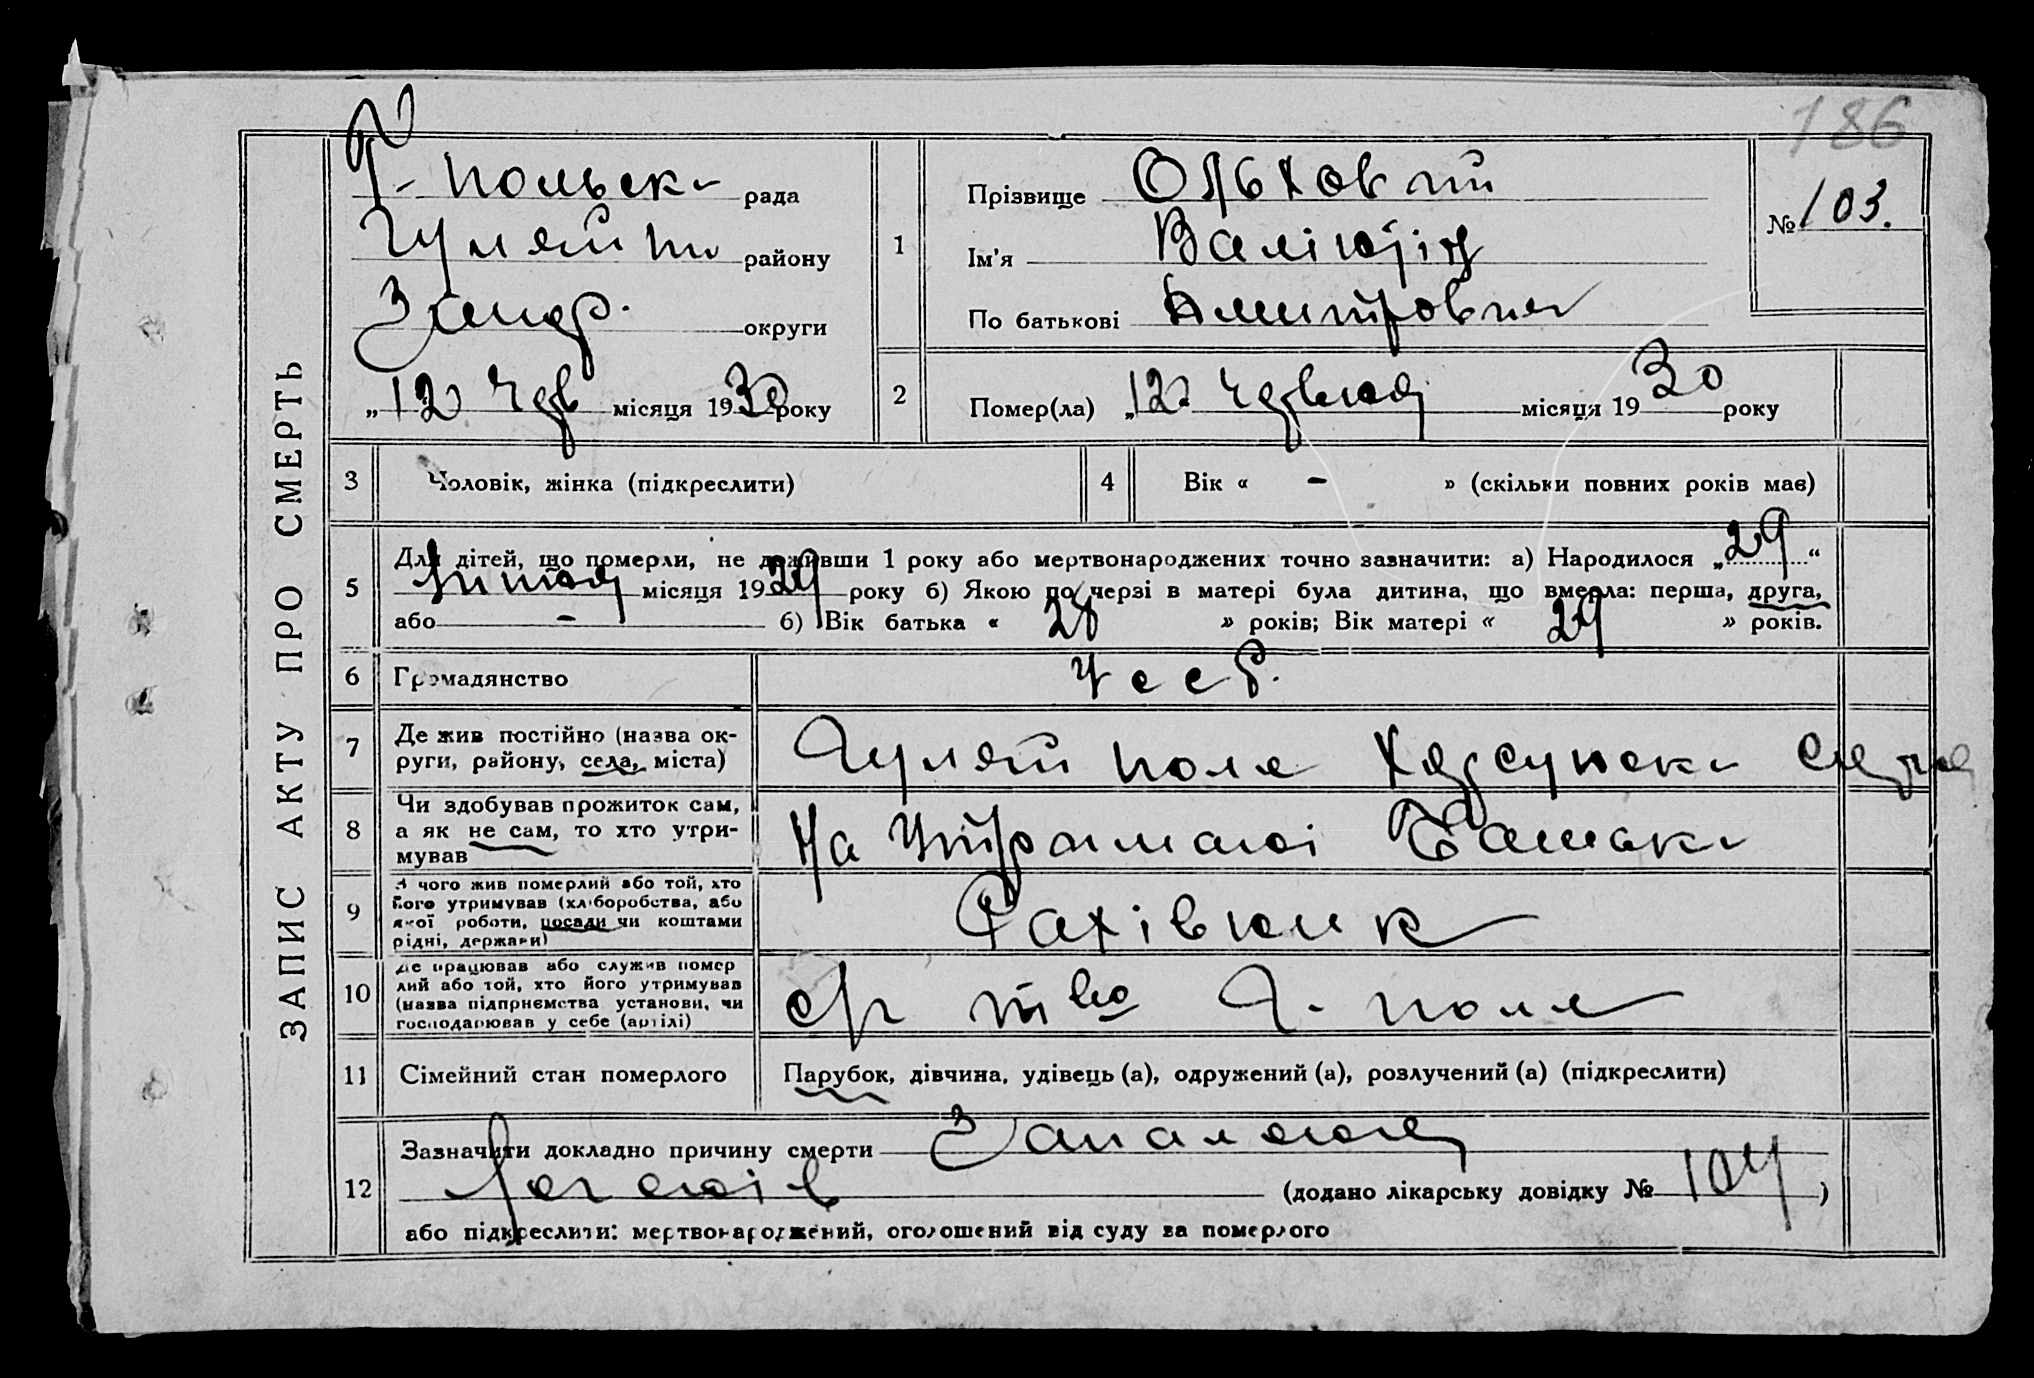 186
ЗАПИС АКТУ ПРО СМЕРТЬ
Г- польськ рада
Гуляй п району
Запор. округи
„12" Черв місяця 1930 року
1
Прізвище Ольховий
Ім'я Валінтін
По батькові Дмитрович
№ 103.
2
Помер(ла) „12" Червня місяця 1930 року
3 Чоловік, жінка (підкреслити)
4 Вік « – » (скільки повних років має)
5
Для дітей, що померли, не доживши 1 року або мертвонароджених точно зазначити: а) Народилося „29“
липня місяця 1929 року б) Якою по черзі в матері була дитина, що вмерла: перша, друга,
або – б) Вік батька « 28 » років; Вік матері « 29 » років.
6 Громадянство УССР.
7
Де жив постійно (назва ок-
руги, району, села, міста)
Гуляй поле Херсунськ
8
Чи здобував прожиток сам,
а як не сам, то хто утри-
мував
На Утриманні Батьк
9
З чого жив померлий або той, хто
його утримував (хліборобства, або
якої роботи, посади чи коштами
рідні, держави)
Рахівник
10
Де працював або служив помер
лий або той, хто його утримував
(назва підприємства установи, чи
господарював у себе (артілі)
ср т во Г- поле
11 Сімейний стан померлого
Парубок, дівчина, удівець (а), одружений (а), розлучений (а) (підкреслити)
12
Зазначити докладно причину смерти Запалення
легенів (додано лікарську довідку № 104)
або підкреслити: мертвонароджений, оголошений від суду за померлого